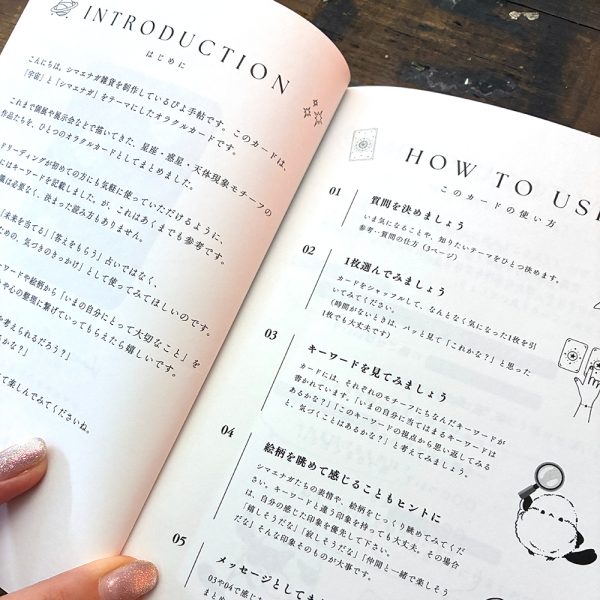 INTRODUCTION
はじめに
こんにちは、シマエナガ雑貨を制作しているぴよ手帖です。このカードは、
「宇宙」と「シマエナガ」をテーマにしたオラクルカードです。
これまで個展や展示会などで描いてきた、星座・惑星・天体現象モチーフの
作品たちを、ひとつのオラクルカードとしてまとめました。
ドリーディングが初めての方にも気軽に使っていただけるように、
にはキーワードを記載しましたが、これはあくまでも参考です。
識は必要なく、決まった読み方もありません。
「未来を当てる」「答えをもらう」占いではなく、
ための、気づきのきっかけ」として使ってみてほしいのです。
ワードや絵柄から「いまの自分にとって大切なこと」を
や心の整理に繋げていってもらえたら嬉しいです。
を考えられるだろう?
るかな?」
て楽しんでみてくださいね。
HOW TO USE
このカードの使い方
01
質問を決めましょう
いま気になることや、知りたいテーマをひとつ決めます。
参考：質問の仕方（3ページ）
02
1枚選んでみましょう
カードをシャッフルして、なんとなく気になった1枚を引
いてみてください。
（時間がないときは、パッと見て「これかな?」と思った
1枚でも大丈夫です）
03
キーワードを見てみましょう
カードには、それぞれのモチーフにちなんだキーワードが
書かれています。「いまの自分に当てはまるキーワードは
あるかな?」「このキーワードの視点から思い返してみる
と、気づくことはあるかな?」と考えてみましょう。
04
絵柄を眺めて感じることもヒントに
シマエナガたちの表情や、絵柄をじっくり眺めてみてくだ
さい。キーワードと違う印象を持っても大丈夫。その場合
は、自分の感じた印象を優先して下さい。
「嬉しそうだな」「寂しそうだな」「仲間と一緒で楽しそう
だな」そんな印象そのものが大事です。
05
メッセージとしてま
03や04で感じた
まとめ